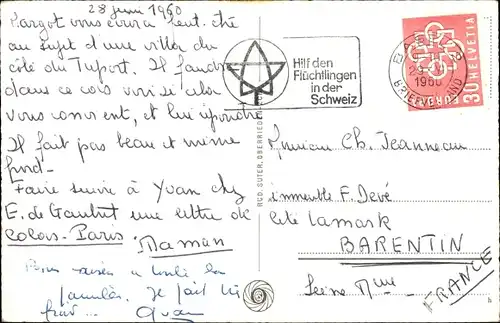 28 juin 1960
Margot vous écrira peut-être
au sujet d'une villa du
côté du Tuport. Il faudra
dans ce cas voir si cela
vous convient, et lui répondre
Il fait pas beau et même
froid.
Faire suivre à Yvan chez
E. de Gaubut une lettre de
Colas. Paris.
Maman
la
famille. Je fait très
froid...
Hilf den
Flüchtlingen
in der
Schweiz
BASEL 2
1960
BRIEFVERSAND
EUROPA
30 HELVETIA
RUD. SUTER, OBERRIEDEN
Monsieur Ch. Jeanneau
immeuble F. Devé
Cité Lamark
BARENTIN
Seine Mme
FRANCE